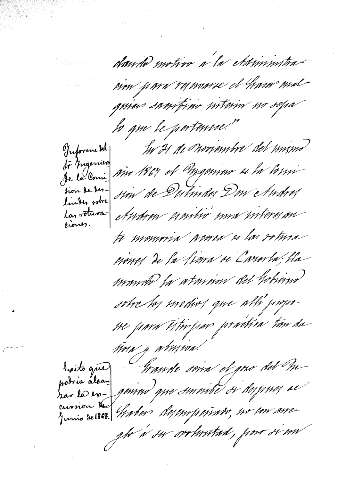 dando motivo á la Administra-
cion para
sacrificio interin no sepa
lo que le pertenece."
Informe del
Ingeniero
de la Comi-
sion de des-
lindes sobre
las rotura-
ciones.
En 31 de Noviembre del mismo
año 1867 el Ingeniero de la Comi-
sion de Deslindes Don Andres
una interesan-
te memoria acerca de las rotura-
ciones de la de Cazorla, lla-
mando la atencion del Gobierno
sobre los medios que allí propo-
ne para estirpar práctica tan da-
ñosa y abusiva.
Exito que
podria alcan-
zar la es-
cursion de
Junio de 1868.
Grande seria el gozo del In-
geniero que suscribe si despues de
haber desempeñado, no con arre-
glo á su voluntad, pero si con